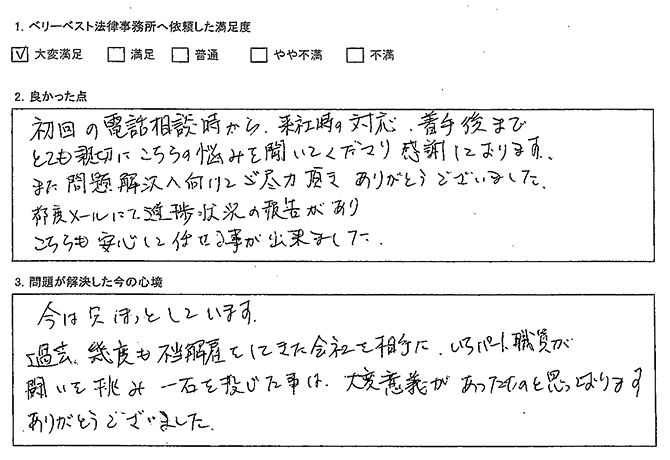 1. ベリーベスト法律事務所へ依頼した満足度
☑ 大変満足 □ 満足 □ 普通 □ やや不満 □ 不満
2. 良かった点
初回の電話相談時から、来社時の対応、着手後まで
とても親切にこちらの悩みを聞いてくださり感謝しております。
また問題解決へ向けてご尽力頂き ありがとうございました。
都度メールにて進捗状況の報告があり
こちらも安心して任せる事が出来ました。
3. 問題が解決した今の心境
今は ほっとしています。
過去、幾度も不当解雇をしてきた会社を相手に、いちパート職員が
闘いを挑み 一石を投じた事は、大変意義があったものと思っております
ありがとうございました。